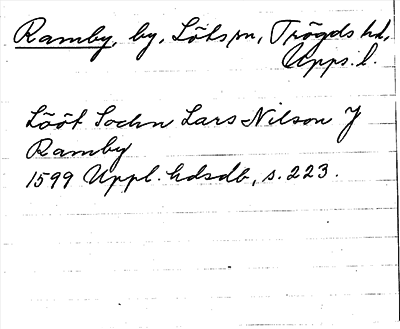 Ramby, by, Löts sn, Trögds hd,
Upps. l.
Lööt Sochn Lars Nilson J
Ramby
1599 Uppl. hdsdb, s. 223.